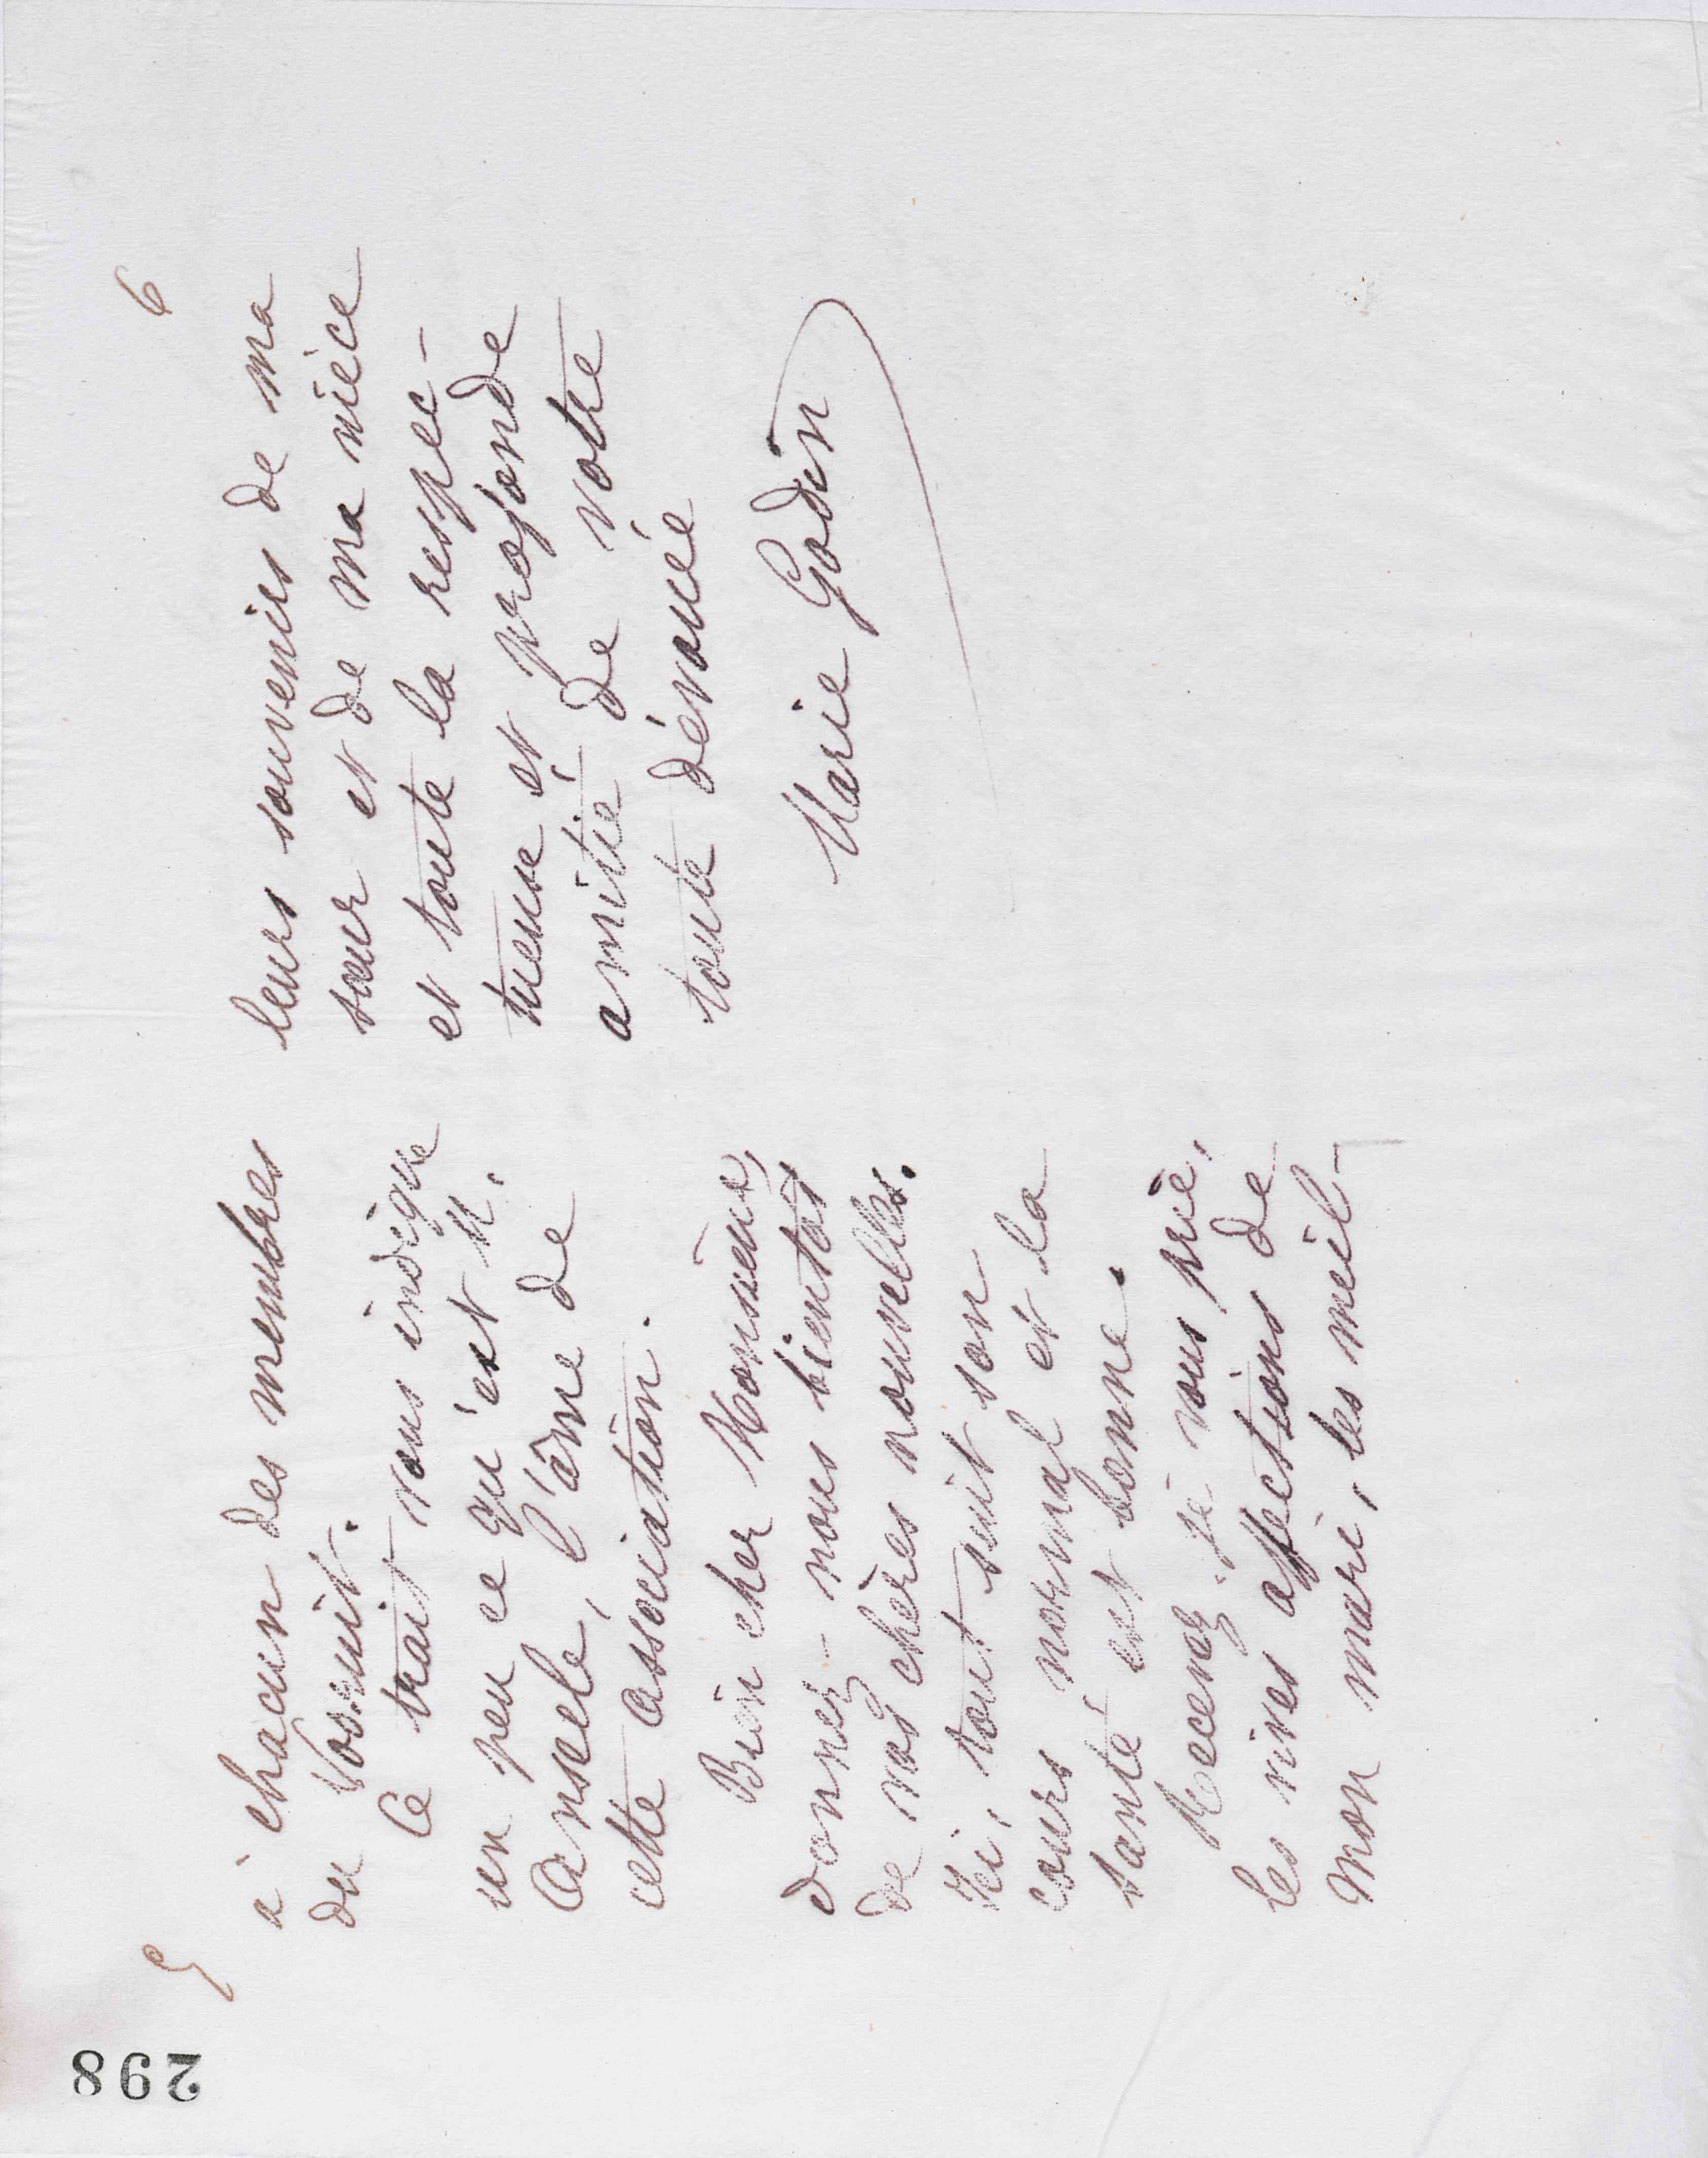 298
5
à chacun des membres
du Vooruit.
Ce trait vous indique
un peu ce qu'est M.
Anseele, l'âme de
cette association.
Bien cher Monsieur,
donnez-nous bientôt
de vos chères nouvelles.
Ici, tout suit son
cours normal et la
santé est bonne.
Recevez, je vous prie,
les vives affections de
mon mari, les meil-
6
leurs souvenirs de ma
sœur et de ma nièce
et toute la respec-
tueuse et profonde
amitié de votre
toute dévouée
Marie Godin